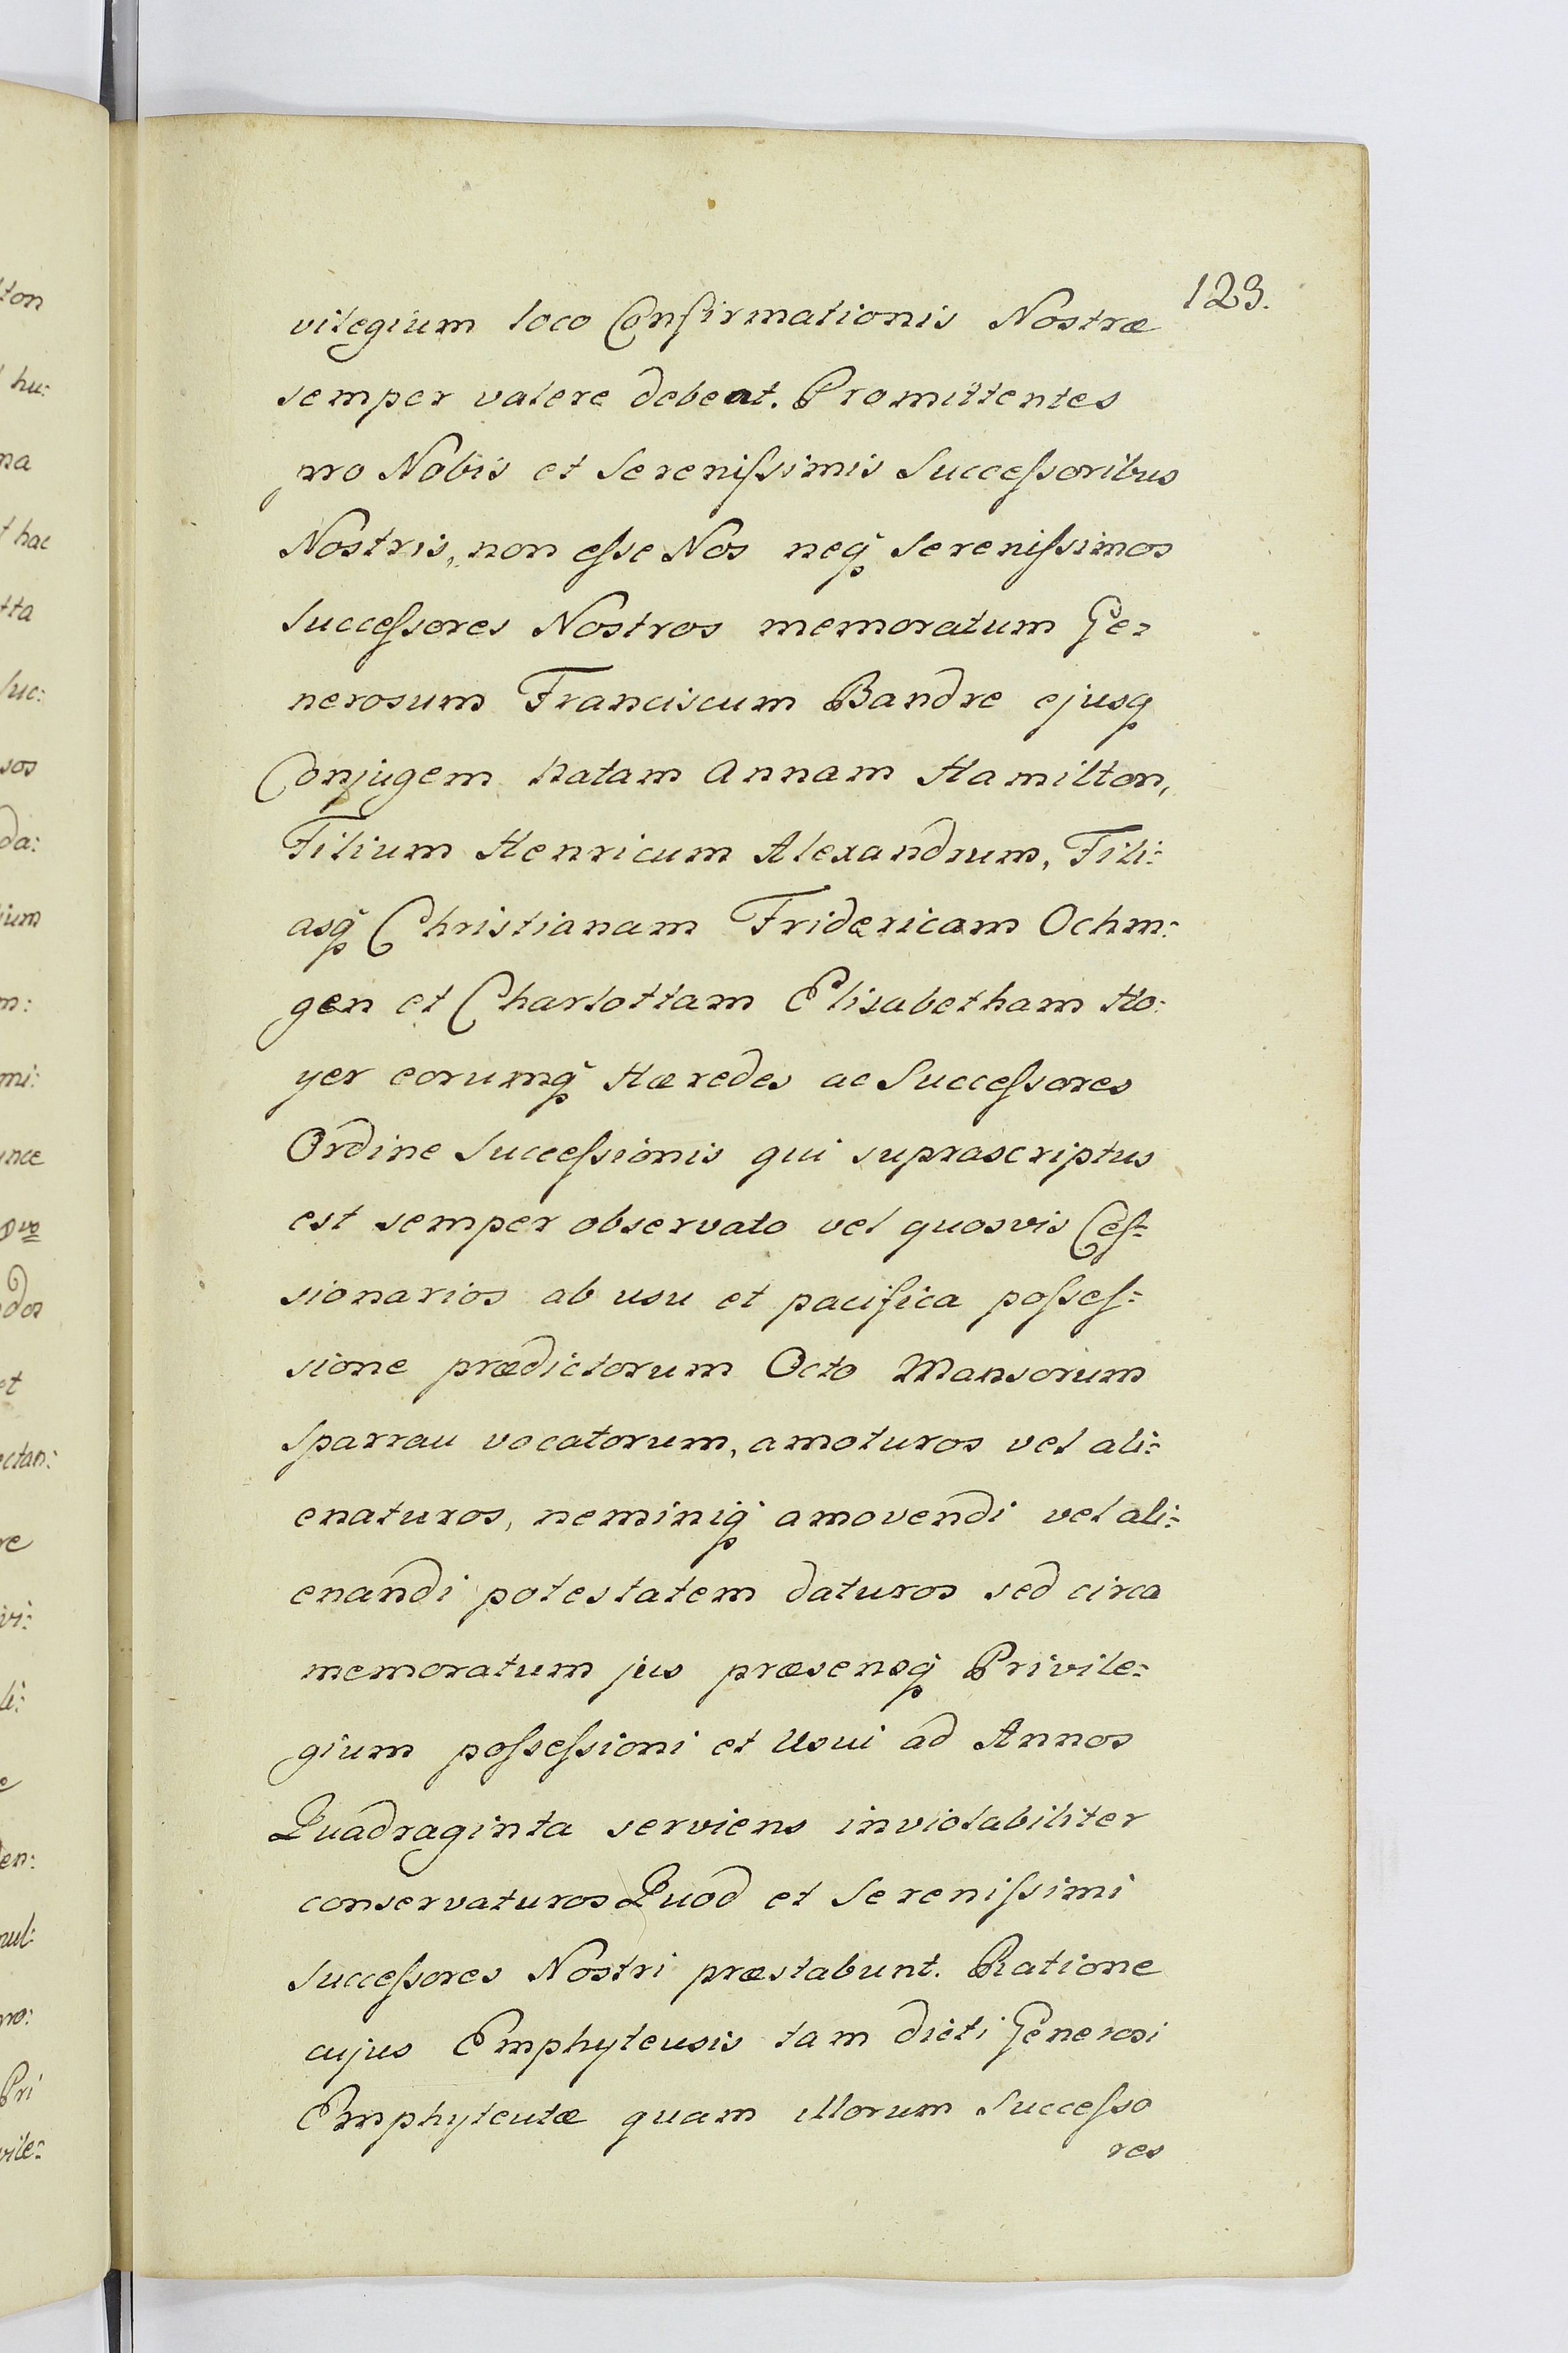 123.
vilegium loco Confirmationis Nostræ
semper valere debeat. Promittentes
pro Nobis et Sereniſsimis Succeſsoribus
Nostris, non eſse Nos neq̃ Sereniſsimos
Succeſsores Nostros memoratum Ge=
nerosum Franciscum Bandre ejusq
Conjugem Natam Annam Hamilton,
Filium Henricum Alexandrum, Fili=
asq̃ Christianam Fridericam Ochm=
gen et Charlottam Elisabetham Ho=
yer eorumq̃ Hæredes ac Succeſsores
Ordine Succeſsionis qui suprascriptus
est semper observato vel quosvis Ceſ=
sionarios ab usu et pacifica poſseſ=
sione prædictorum Octo Mansorum
Sparrau vocatorum, amoturos vel ali=
enaturos, neminiq̃ amovendi vel ali=
enandi potestatem daturos sed circa
memoratum jus præsensq̃ Privile=
gium poſseſsioni et Usui ad Annos
Quadraginta serviens inviolabiliter
conservaturos Quod et Sereniſsimi
Succeſsores Nostri præstabunt. Ratione
cujus Emphyteusis tam dicti Generosi
Emphyteutæ quam illorum Succeſso
res
ton
hu:
na
hac
tta
suc:
sos
da:
ium
m:
mi:
et
ectan:
re
vi:
li:
e
en:
nul:
Pri
vile=